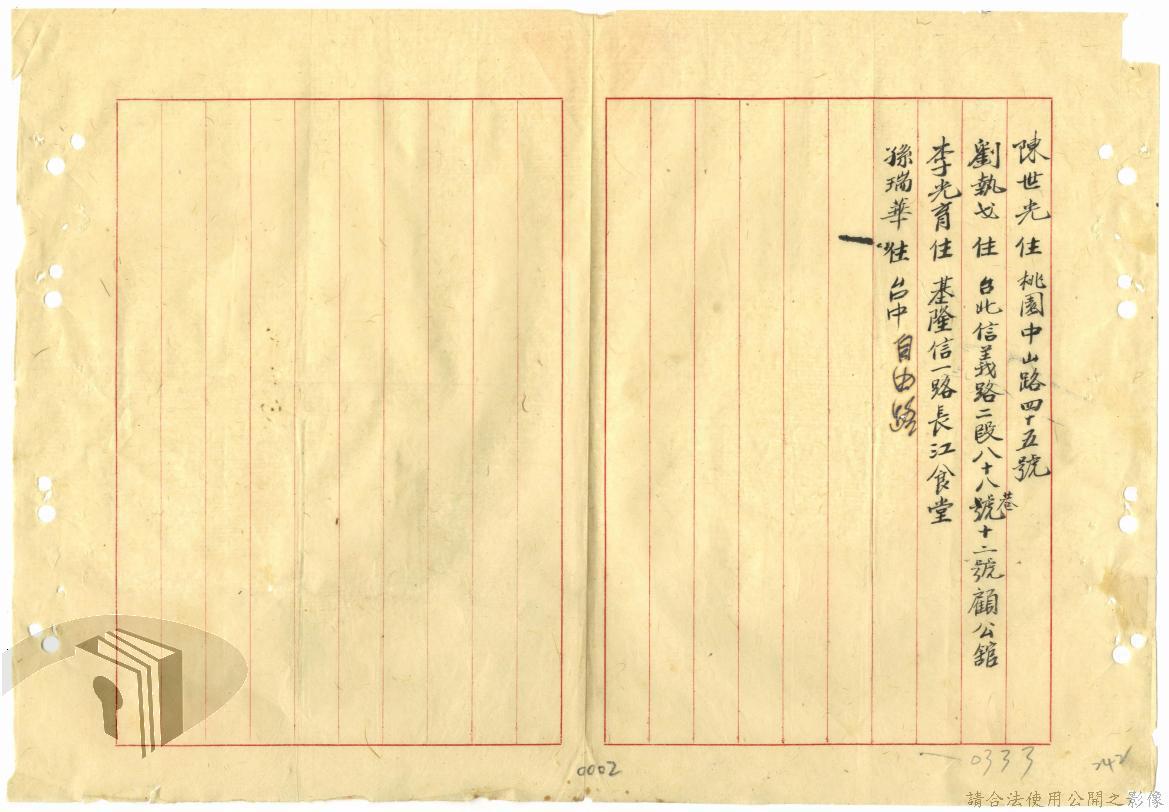 陳世光 住 桃園中山路四十五號
劉執戈 住 台北信義路二段八十八號巷十二號顧公舘
李光育 住 基隆信一路長江食堂
孫瑞華 住 台中自由路
0002
0333
242
請合法使用公開之影像